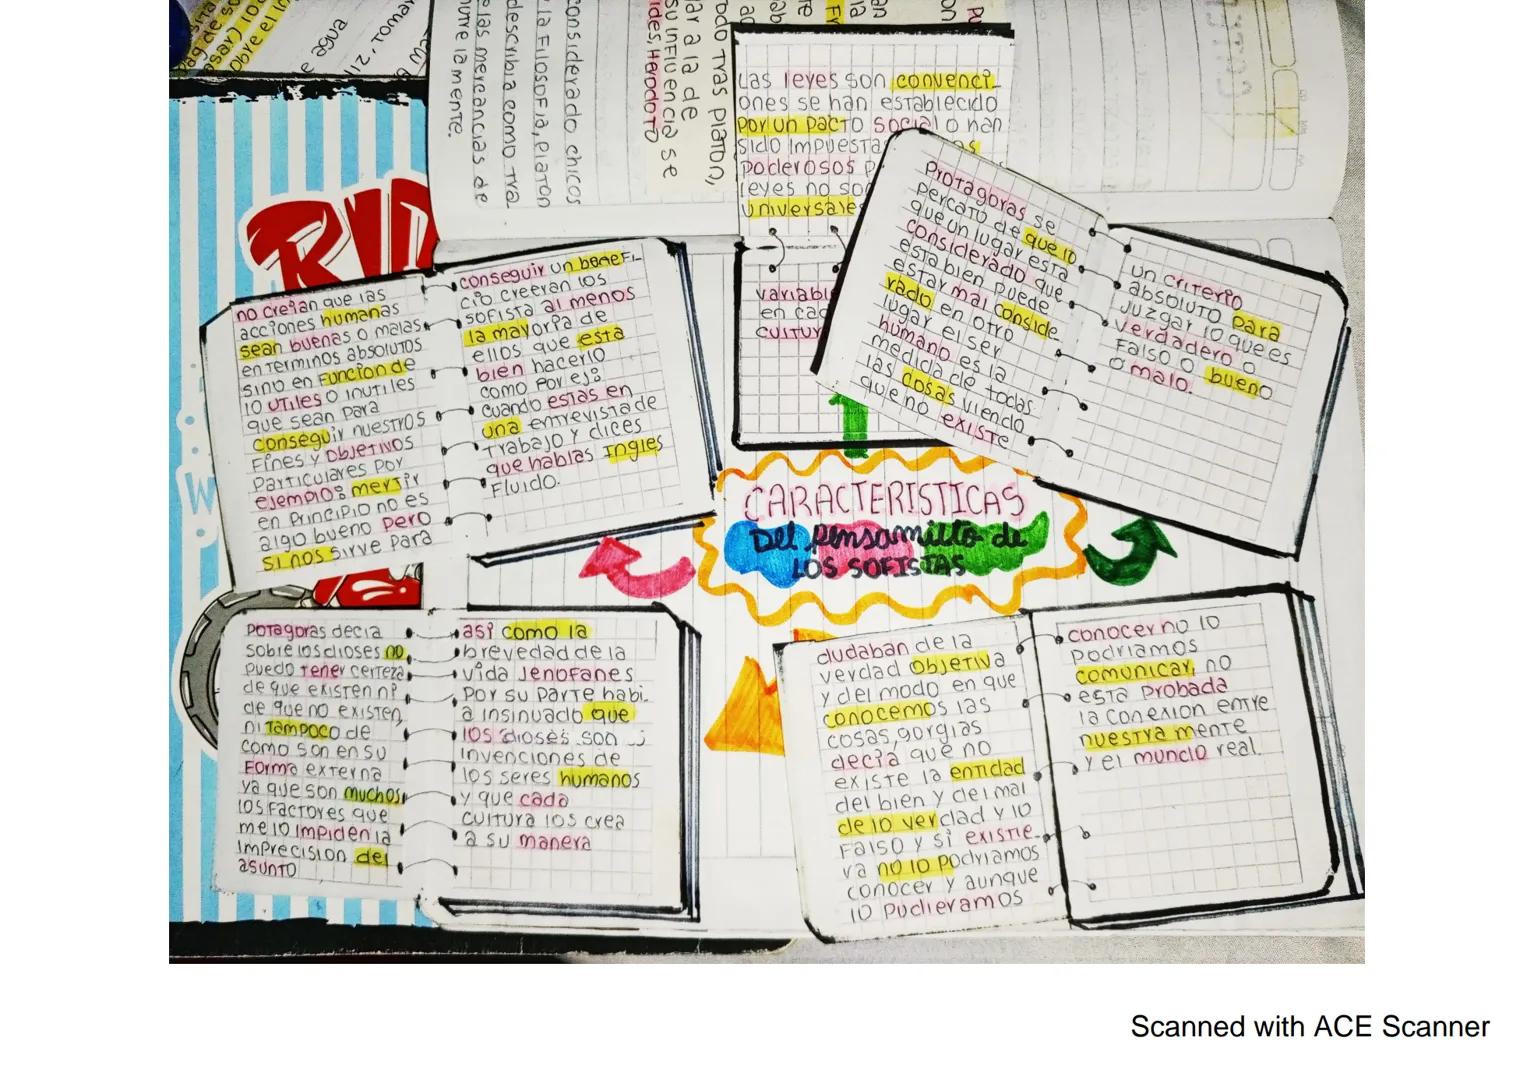 considerado chicos
la Filosofia, Platon
describia como tra
las mercancias de
la mente.
Todo Tras Platon,
a la de
su influencia se
ides, Herodoto
agua
RUT
Las leyes son convenci_
ones se han establecido
por un pacto social o han
sido impuesta
poderosos p
leyes no so
universale
variabl
en cad
cultur
Protagoras se
percato de que lo
que un lugar esta
considerado que
esta bien puede
estar mal conside
rado en otro
lugar el ser
humano es la
medida de todas
las cosas viendo
que no existe
un criterio
absoluto para
juzgar lo que es
verdadero o
Falso o bueno
o malo.
no creian que las
acciones humanas
sean buenas o malas
en terminos absolutos
sino en Funcion de
lo utiles o inutiles
que sean para
conseguir nuestros
Fines y objetivos
particulares por
ejemplo: mertir
en principio no es
algo bueno pero
si nos sirve para
conseguir un benefi_
cio creeran los
sofista al menos
la mayoria de
ellos que esta
bien hacerlo
como por ej:
cuando estas en
una entrevista de
trabajo y dices
que hablas Ingles
Fluido.
CARACTERISTICAS
Del pensamillto de
LOS SOFISTAS
Potagoras decia
sobre los dioses no
puedo tener certeza
de que existen ni
de que no existen,
ni tampoco de
como son en su
Forma externa
ya que son muchos
los Factores que
me lo impiden la
imprecision del
asunto
asi como la
brevedad de la
vida Jenofanes
por su parte habi_
a insinuado que
los dioses son
invenciones de
los seres humanos
y que cada
cultura los crea
a su manera
dudaban de la
verdad objetiva
y del modo en que
conocemos las
cosas gorgias
decia que no
existe la entidad
del bien y del mal
de lo verdad y lo
Falso y si existie_
ra no lo podriamos
conocer y aunque
lo pudieramos
conocer no lo
podriamos
comunicar, no
esta probada
la conexion entre
nuestra mente
y el mundo real.
Scanned with ACE Scanner